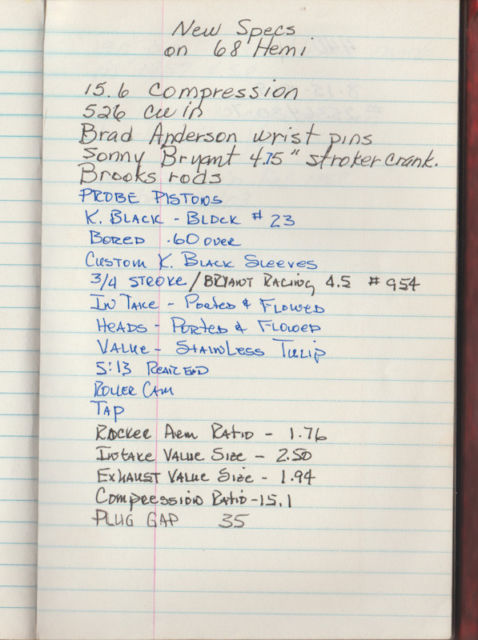 New Specs
on 68 Hemi
15.6 compression
526 cu in
Brad Anderson wrist pins
Sonny Bryant 4.75" stroker crank.
Brooks rods
PROBE PISTONS
K. BLACK - BLOCK # 23
BORED .60 OVER
CUSTOM K. BLACK SLEEVES
3/4 STROKE / BRYANT RACING 4.5 # 954
INTAKE - PORTED & FLOWED
HEADS - PORTED & FLOWED
VALUE - STAINLESS TULIP
5:13 REAR END
ROLLER CAM
TAP
ROCKER ARM RATIO - 1.76
INTAKE VALUE SIZE - 2.50
EXHAUST VALUE SIZE - 1.94
COMPRESSION RATIO - 15.1
PLUG GAP 35